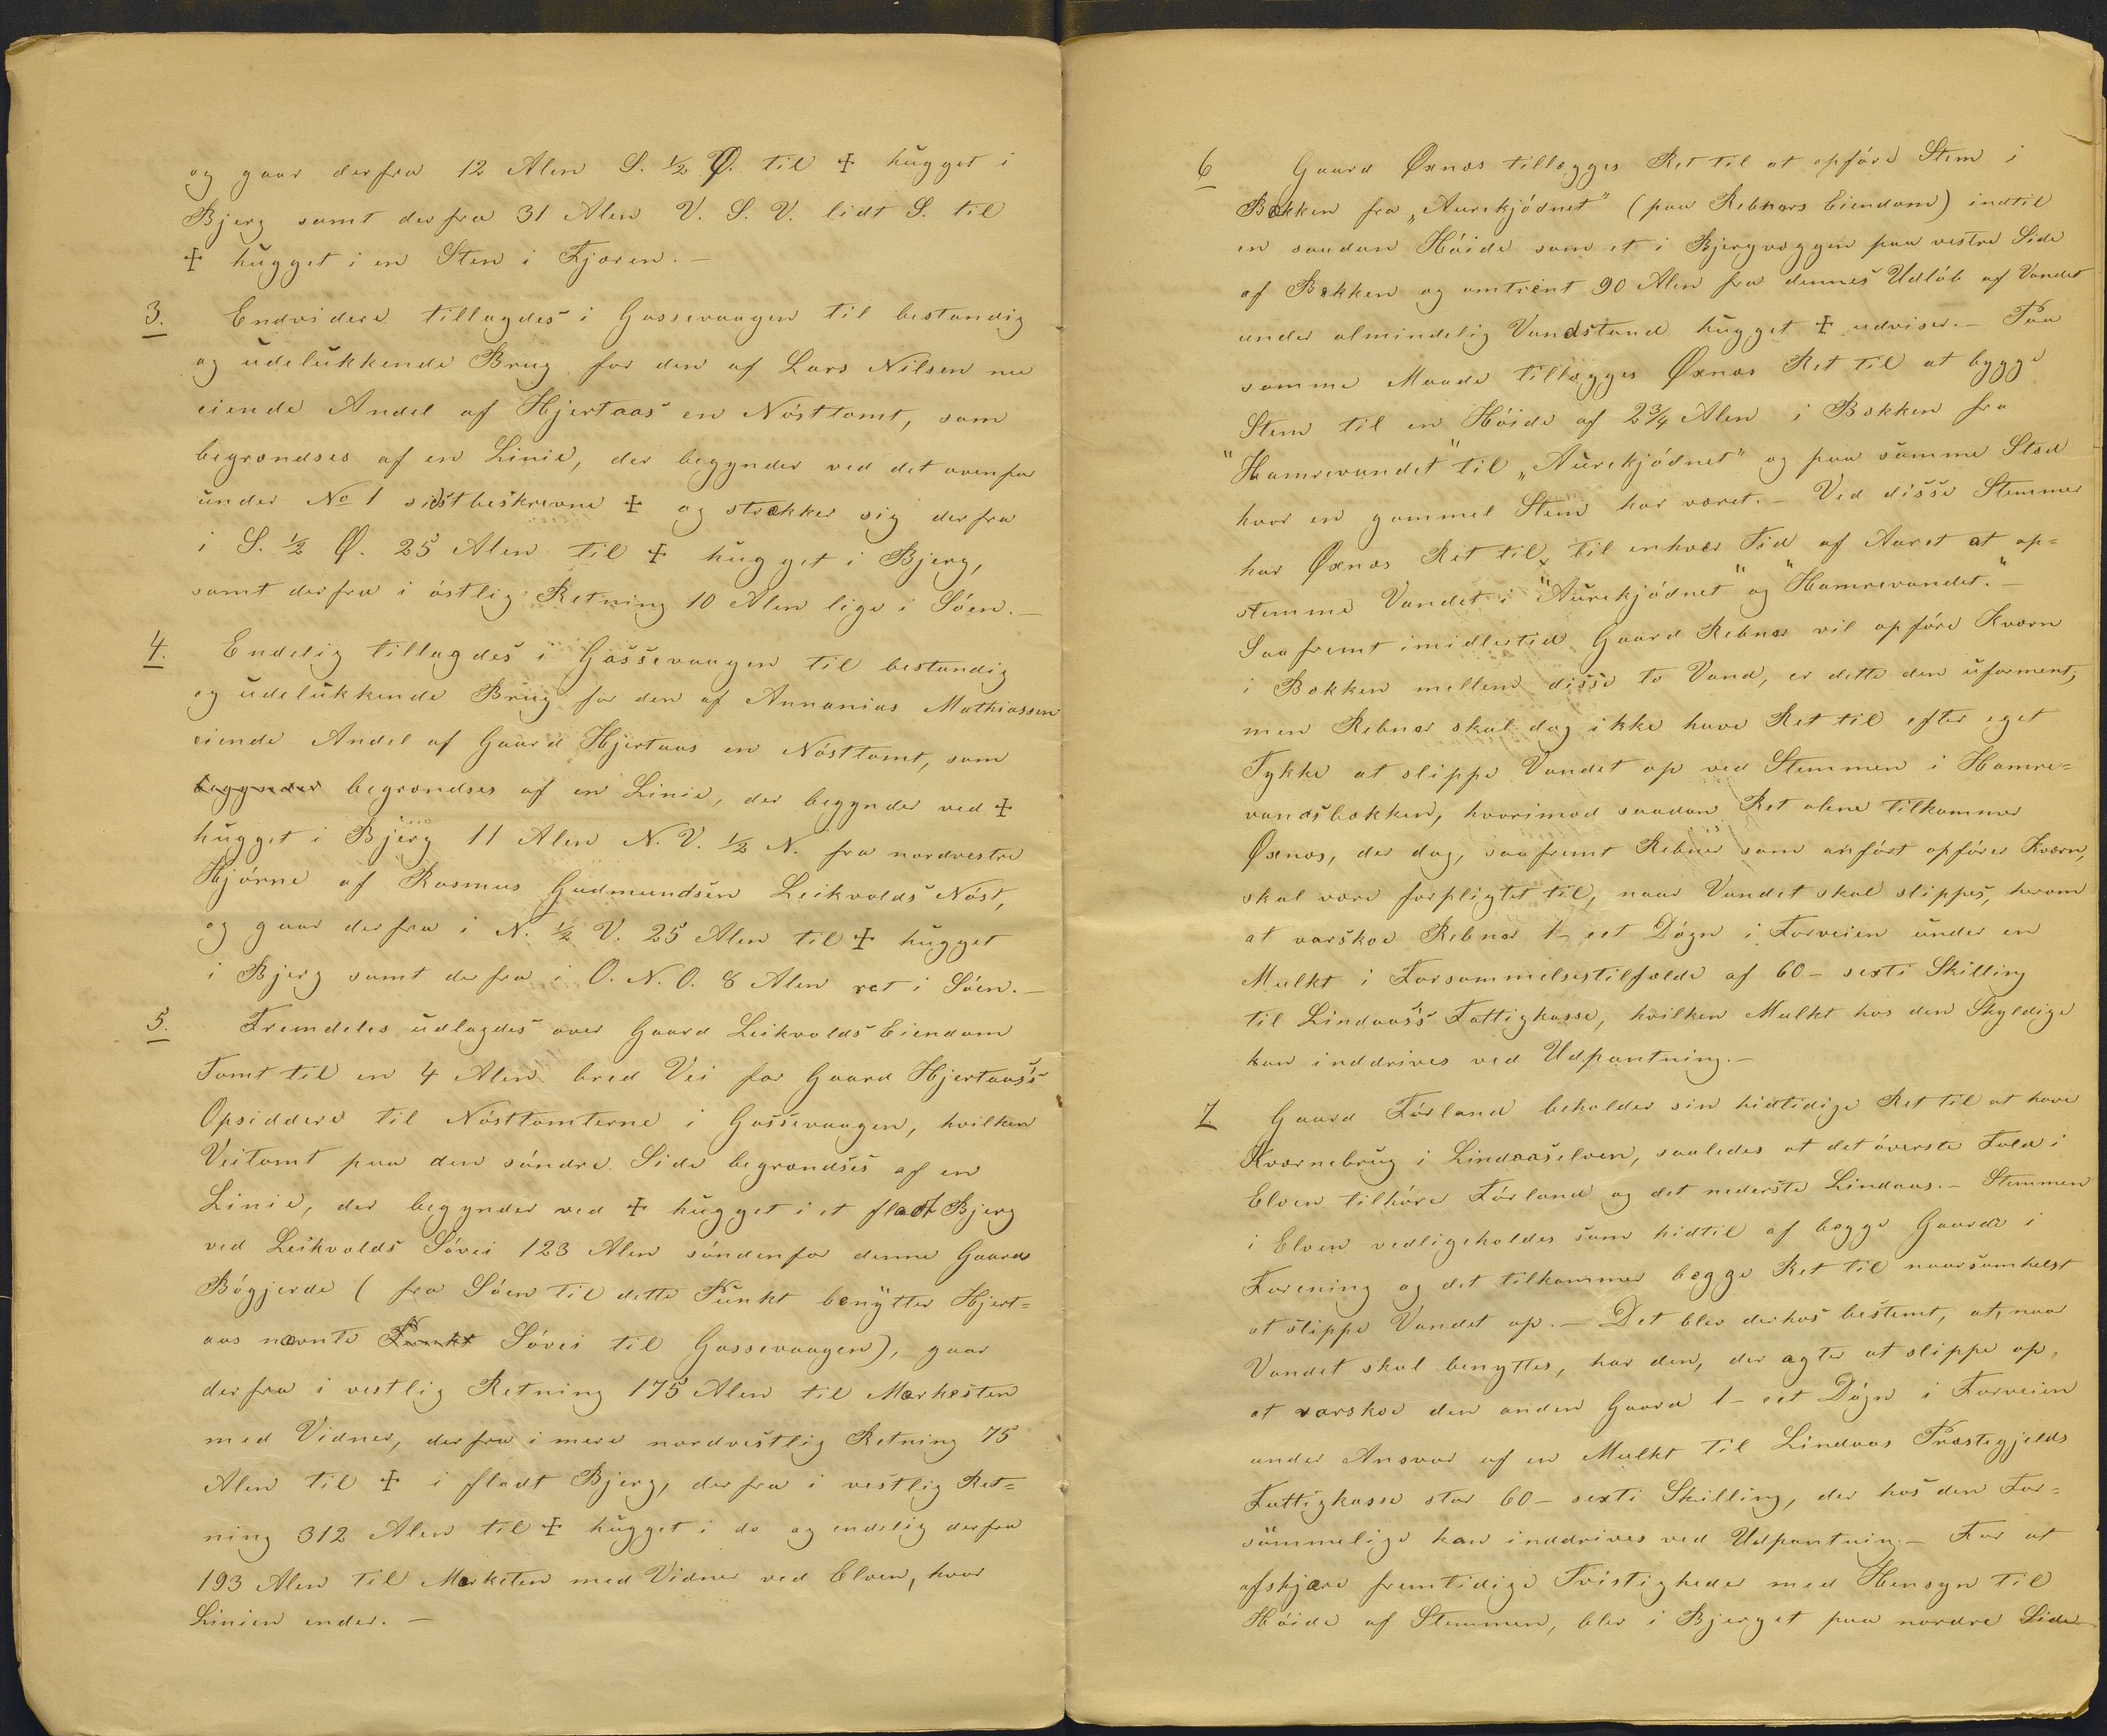 og gaar derfra 12 Alen S. ½ Ø. til ☩ hugget i
Bjerg samt derfra 31 Alen V. S. V. lidt S. til
☩ hugget i en Sten i Fjæren.—
3. Endvidere tillagdes i Gassevaagen til bestandig
og udelukkende Brug for den af Lars Nilsen nu
eiende Andel af Hjertaas en Nósttomt, som
begrændses af en Linie, der begynder ved det ovenfor
under No 1 sidstbeskrevne ☩ og strækker sig derfra
i S. ½ Ø. 25 Alen til ☩ hugget i Bjerg,
samt derfra i óstlig Retning 10 Alen lige i Sóen.—
4. Endelig tillagdes i Gassevaagen til bestandig
og udelukkende Brug for den af Annanias Mathiassen
eiende Andel af Gaard Hjertaas en Nósttomt, som
begynder begrændses af en Linie, der begynder ved ☩
hugget i Bjerg 11 Alen N. V. ½ N. fra nordvestre
Hjórne af Rasmus Gudmundsen Leikvolds Nóst,
og gaar derfra i N. ½ V. 25 Alen til ☩ hugget
i Bjerg samt derfra i O. N. O. 8 Alen ret i Sóen.—
5. Fremdeles udlagdes over Gaard Leikvolds Eiendom
Tomt til en 4 Alen bred Vei for Gaard Hjertaas's
Opsiddere til Nósttomterne i Gassevaagen, hvilken
Veitomt paa den sóndre Side begrændses af en
Linie, der begynder ved ☩ hugget i et fladt Bjerg
ved Leikvolds Sóvei 123 Alen sóndenfor denne Gaards
Bógjerde (fra Sóen til dette Punkt benytter Hjert=
aas nævnte Punkt Sóvei til Gassevaagen), gaar
derfra i vestlig Retning 175 Alen til Mærkesten
med Vidner, derfra i mere nordvestlig Retning 75
Alen til ☩ i fladt Bjerg, derfra i vestlig Ret=
ning 312 Alen til ☩ hugget i do og endelig derfra
193 Alen til Mærkesten med Vidner ved Elven, hvor
Linien ender.—
6 Gaard Øxnæs tillægges Ret til at opfóre Stem i
Bækken fra „Aurekjódnet" (paa Rebnors Eiendom) indtil
en saadan Hóide som et i Bjergvæggen paa vestre Side
af Bækken og omtrent 90 Alen fra dennes Udlób af Vandet
under almindelig Vandstand hugget ☩ udviser.— Paa
samme Maade tillægges Øxnæs Ret til at bygge
Stem til en Hóide af 2¾ Alen i Bækken fra
"Hamrevandet" til „Aurekjódnet" og paa samme Sted
hvor en gammel Stem har været.— Ved disse Stemmer
har Øxnæs Ret til, til enhver Tid af Aaret at op=
stemme Vandet i "Aurekjódnet" og "Hamrevandet."—
Saafremt imidlertid Gaard Rebnor vil opfóre Kværn
i Bækken mellem disse to Vand, er dette den uforment,
men Rebnor skal dog ikke have Ret til efter eget
Tykke at slippe Vandet op ved Stemmen i Hamre=
vandsbækken, hvorimod saadan Ret alene tilkommer
Øxnæs, der dog, saafremt Rebnor som anfórt opfórer Kværn,
skal være forpligtet til, naar Vandet skal slippes, herom
at varskoe Rebnor 1 – eet Dógn i Forveien under en
Mulkt i Forsømmelsestilfælde af 60 – sexti Skilling
til Lindaas's Fattigkasse, hvilken Mulkt hos den Skyldige
kan inddrives ved Udpantning.—
7. Gaard Fórland beholder sin hidtidige Ret til at have
Kværnebrug i Lindaaselven, saaledes at det óverste Fald i
Elven tilhórer Fórland og det nederste Lindaas.— Stemmen
i Elven vedligeholdes som hidtil af begge Gaarde i
Forening og det tilkommer begge Ret til naarsomhelst
at slippe Vandet op.— Det blev derhos bestemt, at, naar
Vandet skal benyttes, har den, der agter at slippe op,
at varskoe den anden Gaard 1 – eet Dógn i Forveien
under Ansvar af en Mulkt til Lindaas Præstegjelds
Fattigkasse stor 60 – sexti Skilling, der hos den For=
sömmelige kan inddrives ved Udpantning.— For at
afskjære fremtidige Tvistigheder med Hensyn til
Hóide af Stemmen, blev i Bjerget paa nordre Side